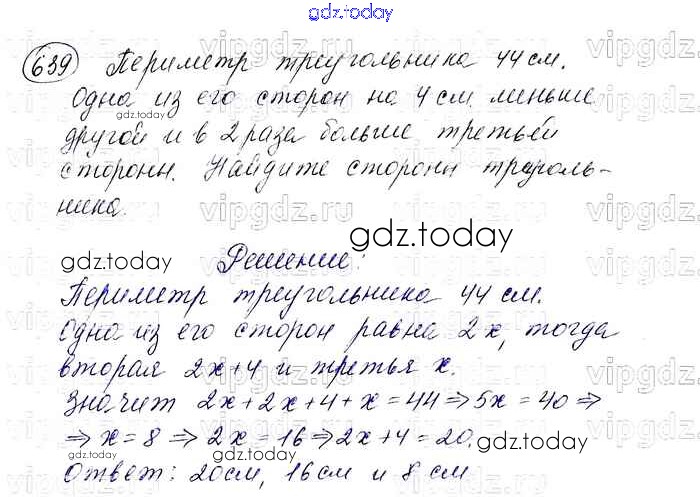 gdz.today
639 Периметр треугольника 44 см.
Одна из его сторон на 4 см меньше
другой и в 2 раза больше третьей
стороны. Найдите стороны треуголь-
ника.
Решение:
Периметр треугольника 44 см.
Одна из его сторон равна 2x, тогда
вторая 2x+4 и третья x.
Значит 2x+2x+4+x=44⇒5x=40⇒
⇒x=8⇒2x=16⇒2x+4=20.
Ответ: 20см, 16см и 8 см
gdz.today
gdz.today
gdz.today
gdz.today
gdz.today
gdz.today
gdz.today
vipgdz.ru